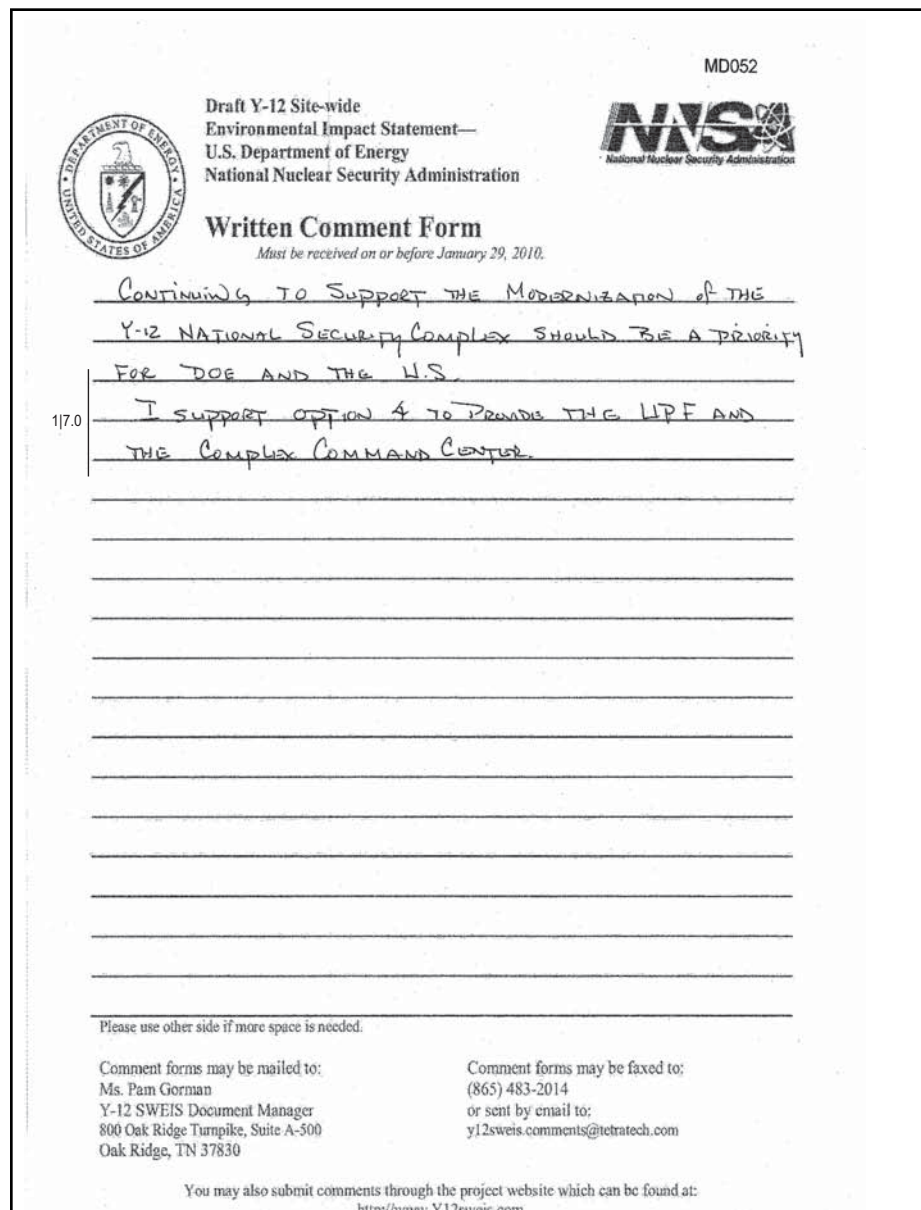 MD052
Draft Y-12 Site-wide
Environmental Impact Statement—
U.S. Department of Energy
National Nuclear Security Administration
DEPARTMENT OF ENERGY
UNITED STATES OF AMERICA
NNSA
National Nuclear Security Administration
Written Comment Form
Must be received on or before January 29, 2010.
CONTINUING TO SUPPORT THE MODERNIZATION of THE
Y-12 NATIONAL SECURITY COMPLEX SHOULD BE A PRIORITY
FOR DOE AND THE U.S.
1|7.0
I SUPPORT OPTION 4 TO PROVIDE THE UPF AND
THE COMPLEX COMMAND CENTER.
Please use other side if more space is needed.
Comment forms may be mailed to:
Ms. Pam Gorman
Y-12 SWEIS Document Manager
800 Oak Ridge Turnpike, Suite A-500
Oak Ridge, TN 37830
Comment forms may be faxed to:
(865) 483-2014
or sent by email to:
y12sweis.comments@tetratech.com
You may also submit comments through the project website which can be found at:
http://www.Y12sweis.com